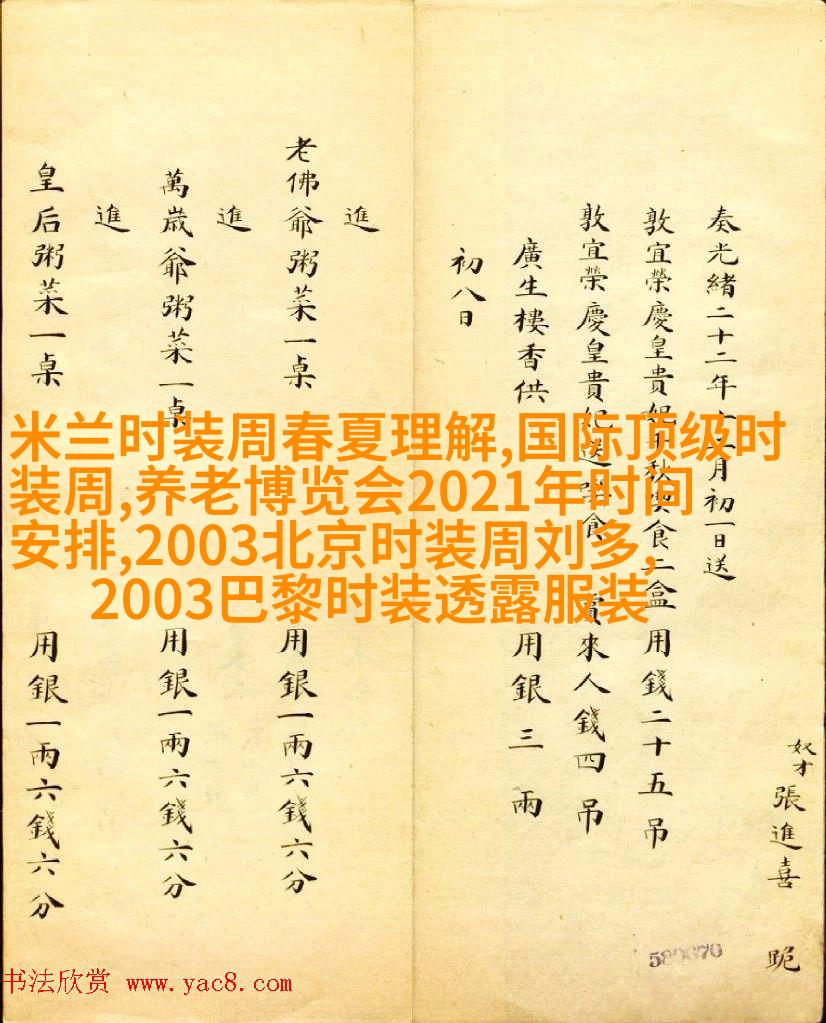 奴才張進喜 跪
奏光緒二十二年月初一日送
敦宜榮慶皇貴妃食二盒用錢二十五吊
敦宜榮慶皇貴妃送食 賞來人錢四吊
廣生樓香供 用銀三兩
初八日
進
老佛爺粥菜一桌 用銀一兩六錢六分
進
萬歲爺粥菜一桌 用銀一兩六錢六分
進
皇后粥菜一桌 用銀一兩六錢六分
米兰时装周春夏理解,国际顶级时
装周,养老博览会2021年时间
安排,2003北京时装周刘多,
2003巴黎时装透露服装
书法欣赏 www.yac8.com